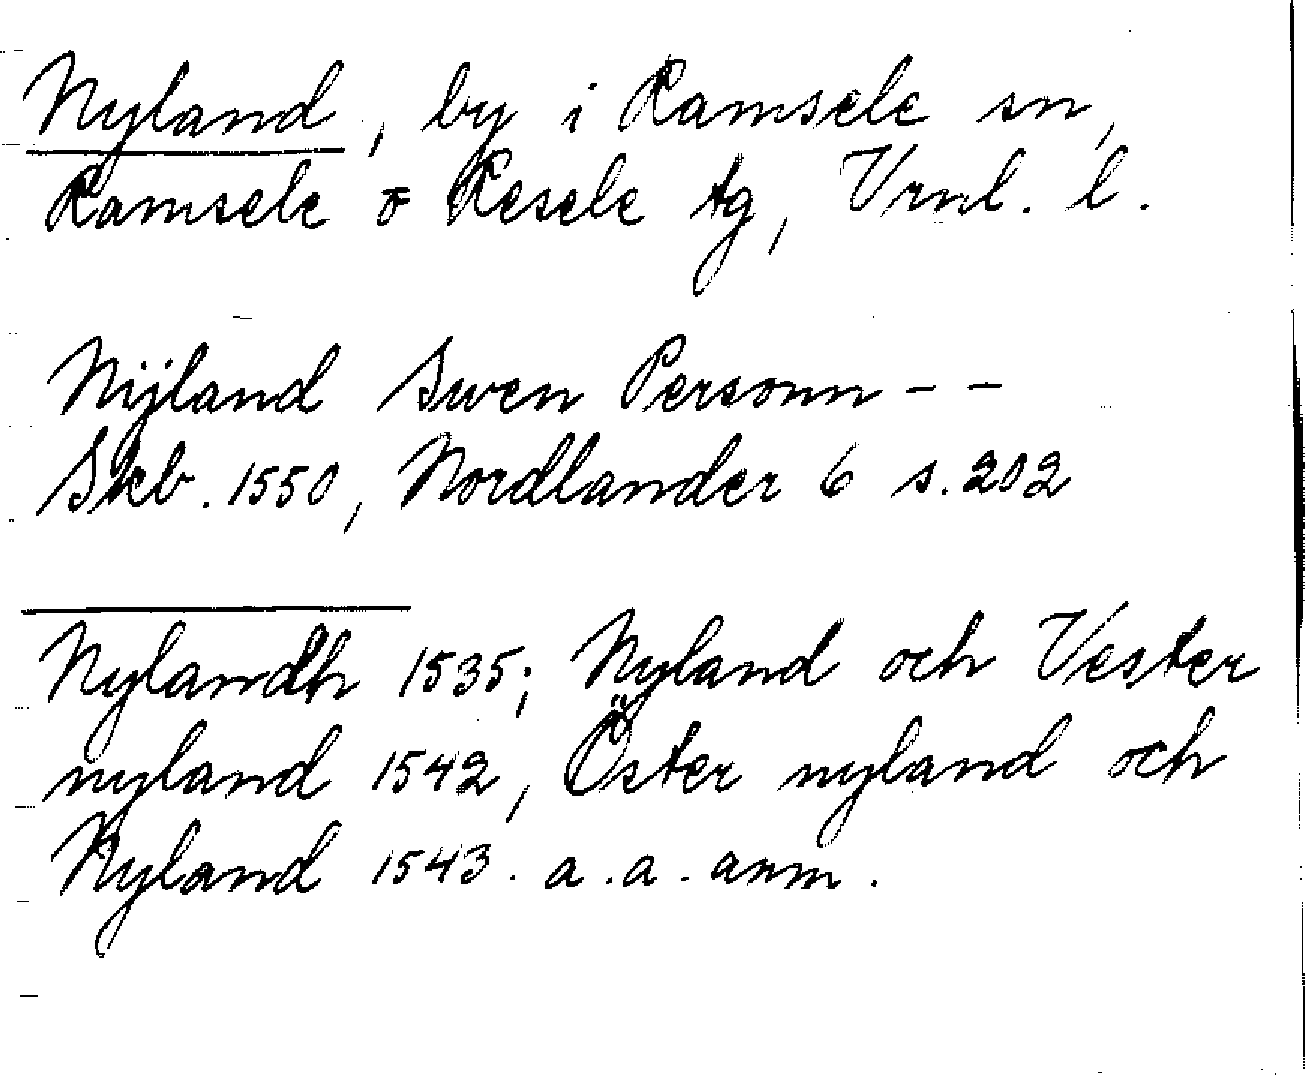 Nyland, by i Ramsele sn,
Ramsele o Resele tg, Vrnl. l.
Nÿland Swen Personn - -
Skb. 1550, Nordlander 6 s. 202
Nylandh 1535; Nyland och Vester
nyland 1542, Öster nyland och
Nyland 1543. a.a. anm.